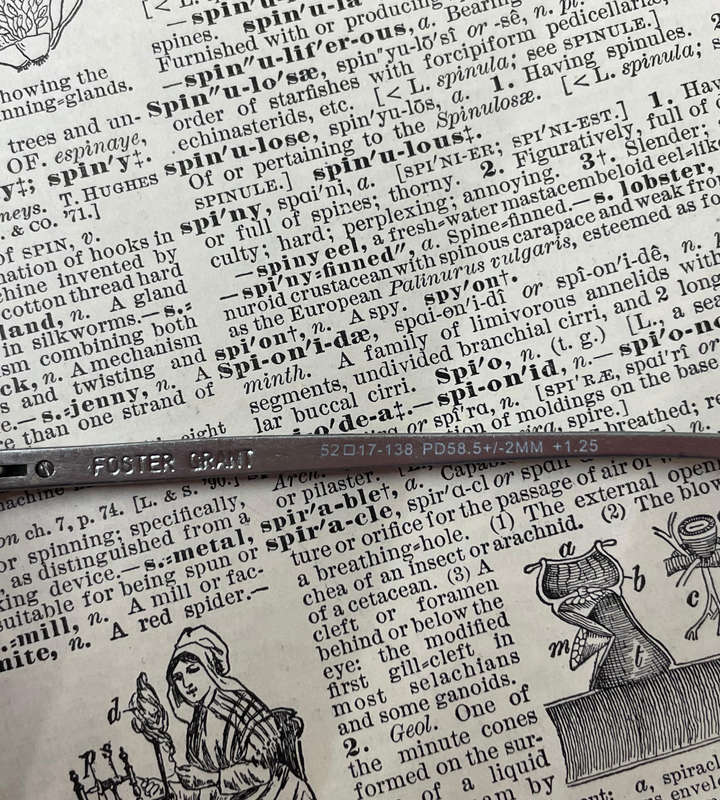 spin'u-la
spines.
Furnished with or producing
—spin″u-lif′er-ous, a. Bearing
Spin″u-lo′sæ, spin″yu-lō′sî or -sê, n. pl.
order of starfishes with forcipiform pedicellariæ,
echinasterids, etc. [< L. spinula; see SPINULE.]
spin′u-lose, spin′yu-lōs, a. 1. Having spinules.
Of or pertaining to the Spinulosæ. [< L. spinula;
SPINULE.] spin′u-lous‡.
spi′ny, spɑi′ni, a. [SPI′NI-ER; SPI′NI-EST.] 1.
or full of spines; thorny. 2. Figuratively, full of
culty; hard; perplexing; annoying. 3†. Slender;
—spiny eel, a fresh-water mastacembeloid eel-like
—spi′ny=finned″, a. Spine=finned.—s. lobster,
nuroid crustacean with spinous carapace and weak
as the European Palinurus vulgaris, esteemed as
spi′on†, n. A spy. spy′on†.
Spi-on′i-dæ, spɑi-en′i-dî or spî-on′i-dê, n.
minth. A family of limivorous annelids with
segments, undivided branchial cirri, and 2 long
lar buccal cirri. Spi′o, n. (t. g.) [L., a
de-a‡.—spi-on′id, n.—
or spî′ra, n. [SPI′RÆ, spɑi′rî or
of moldings on the base
spire.]
FOSTER GRANT 52□17-138 PD58.5+/-2MM +1.25
Arch.
or pilaster.
spir′a-ble†, a.
spir′a-cle, spir′a-cl or
ture or orifice for the passage of air or
a breathing=hole. (1) The external
chea of an insect or arachnid. (2) The
of a cetacean. (3) A
cleft or foramen
behind or below the
eye: the modified
first gill=cleft in
most selachians
and some ganoids.
2. Geol. One of
the minute cones
formed on the sur-
of a liquid
by
howing the
nning=glands.
trees and un-
OF. espinaye,
y‡; spin′y‡.
T. HUGHES
& CO. '71.]
of SPIN, v.
nation of hooks in
chine invented by
cotton thread hard
land, n. A gland
in silkworms.—s.=
ism combining both
ck, n. A mechanism
s and twisting and
e.—s.=jenny, n. A
re than one strand of
eight
machine
on ch. 7, p. 74. [L. & S. '90.]
or spinning; specifically,
as distinguished from a
king device.—s.=metal,
suitable for being spun or
.=mill, n. A mill or fac-
nite, n. A red spider.—
d
a
b
c
m
t
a, spiracl